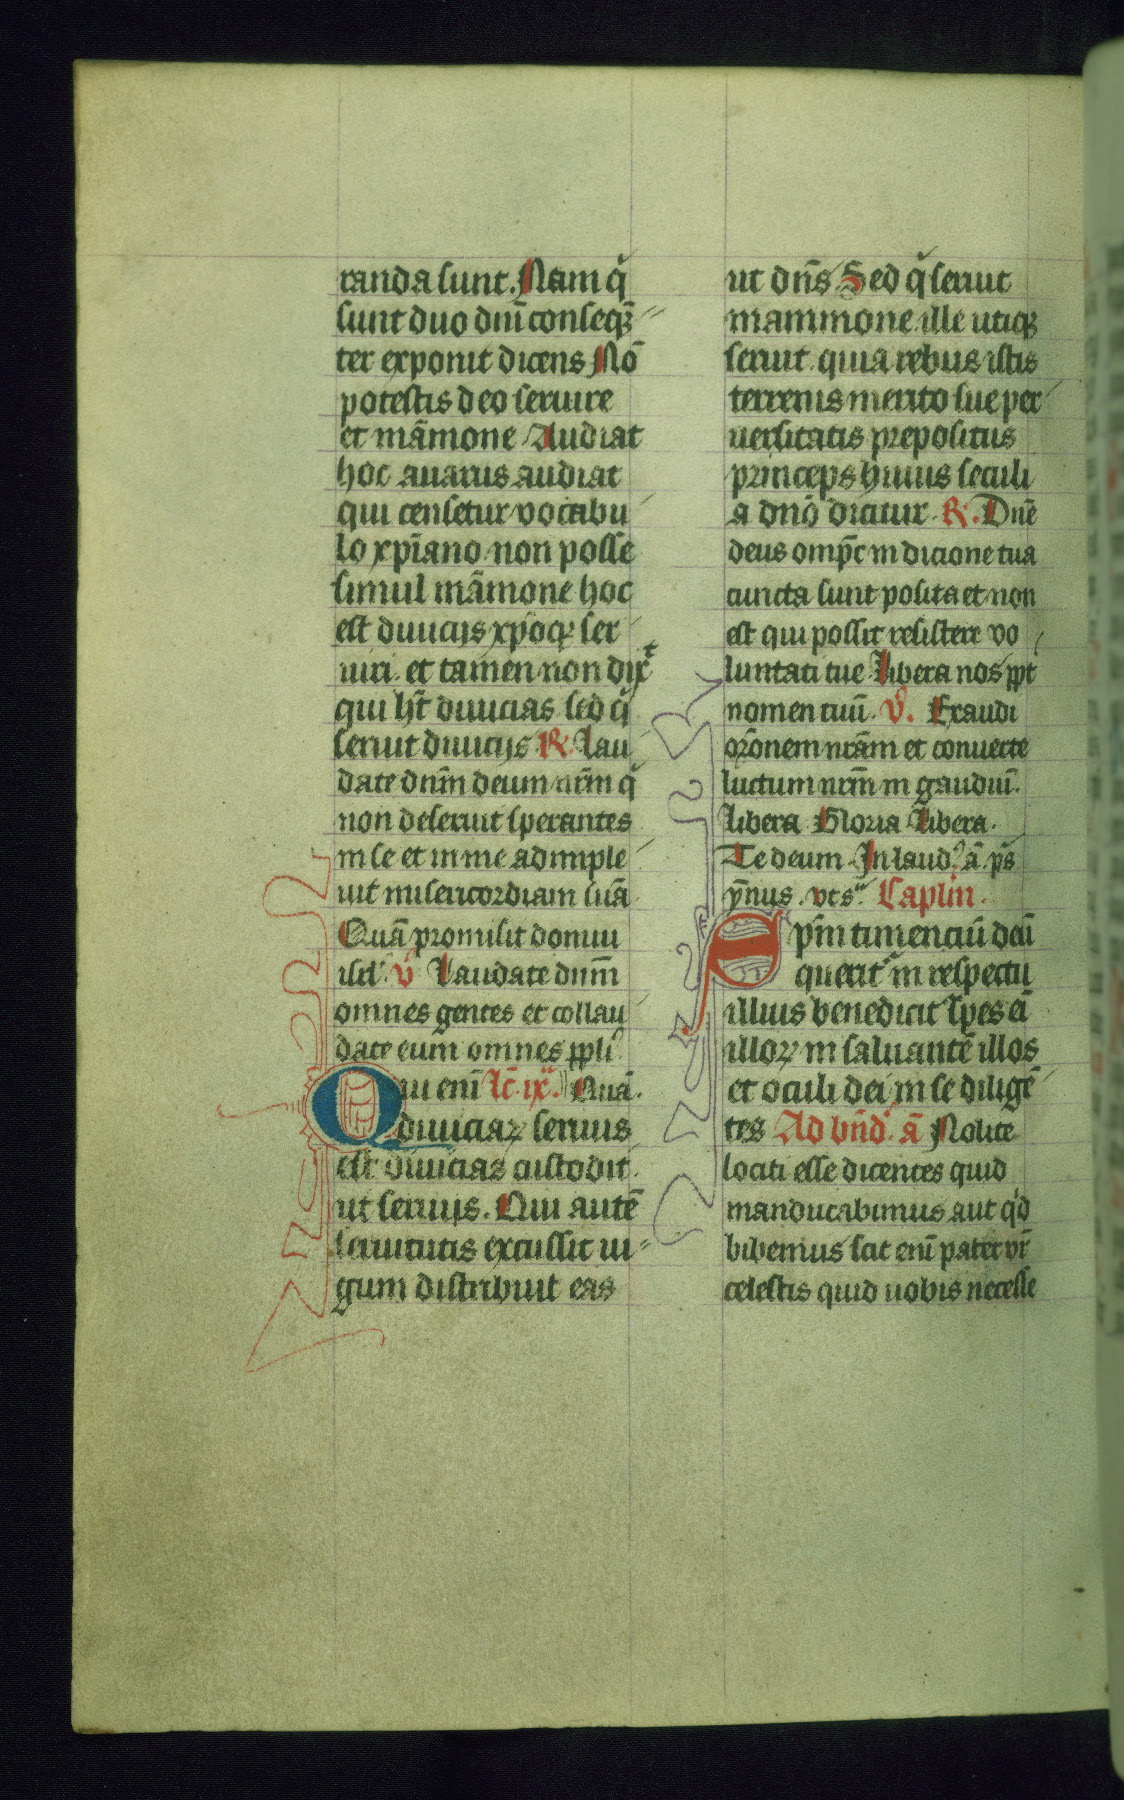 randa sunt. Nam q̃
sunt duo dn̄i conseq̄
ter exponit dicens Nō
potestis deo seruire
et māmone Audiat
hoc auarus audiat
qui censetur vocabu
lo xp̄iano non posse
simul māmone hoc
est diuicijs xp̄oqꝫ ser
uiri. et tamen non dixͭ
qui ht̄ diuicias sed q̃
seruit diuicijs ℟. Lau
date dn̄m deum nr̄m q̃
non deseruit sperantes
in se et in me adimple
uit misericordiam suā
Quā promisit domui
isrl̄. v̄ Laudate dn̄m
omnes gentes et collau
date eum omnes ppl̄i
Qui enī Lc̄. ix. Quā.
diuiciaꝝ seruus
est diuicias custodit
ut seruus. Qui autē
seruitutis excussit iu
gum distribuit eas
ut dn̄s Sed q̃ seruit
mammone ille utiqꝫ
seruit quia rebus istis
terrenis merito sue per
uersitatis prepositus
princeps huius seculi
a dn̄o dicitur ℟. Dn̄e
deus omp̄c in dicione tua
cuncta sunt posita et non
est qui possit resistere vo
luntati tue Libera nos ppt̄
nomen tuū. v̄. Exaudi
or̄onem nr̄am et conuerte
luctum nr̄m in gaudiū.
Libera Gloria Libera.
Te deum In laud̄ ā. ps̄
ym̄nus. vt sͣ. Capl̄m.
Spm̄ timenciū deū
querit᷑ in respectu
illius benedicit᷑ spes eī
illoꝝ in saluantē illos
et oculi dei in se diligē
tes Ad bn̄d. ā Nolite
lociti esse dicentes quid
manducabimus aut qͥd
bibemus scit enī pater vr̄
celestis quid uobis necesse